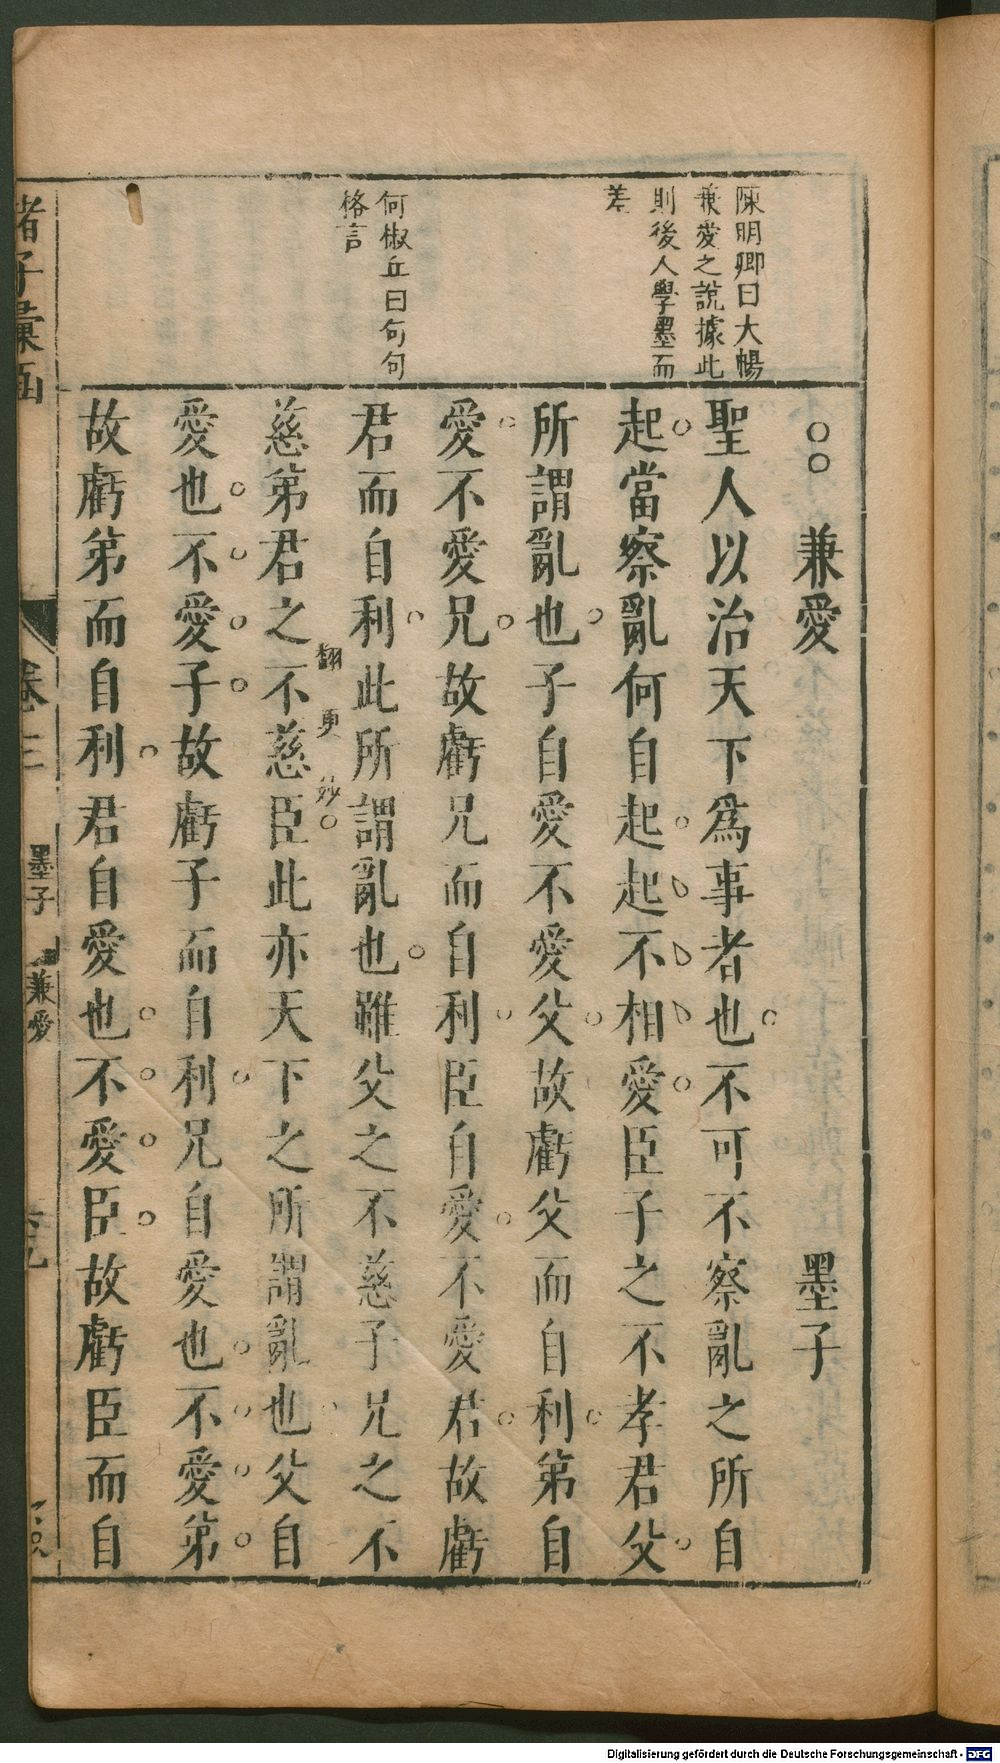 陳明卿曰大暢
兼愛之說據此
則後人學墨而
差
何椒丘曰句句
格言
兼愛 墨子
聖人以治天下為事者也不可不察亂之所自
起當察亂何自起起不相愛臣子之不孝君父
所謂亂也子自愛不愛父故虧父而自利第自
愛不愛兄故虧兄而自利臣自愛不愛君故虧
君而自利此所謂亂也雖父之不慈子兄之不
翻更妙
慈第君之不慈臣此亦天下之所謂亂也父自
愛也不愛子故虧子而自利兄自愛也不愛第
故虧第而自利君自愛也不愛臣故虧臣而自
諸子彙函 卷三 墨子 兼愛
Digitalisierung gefördert durch die Deutsche Forschungsgemeinschaft - DFG